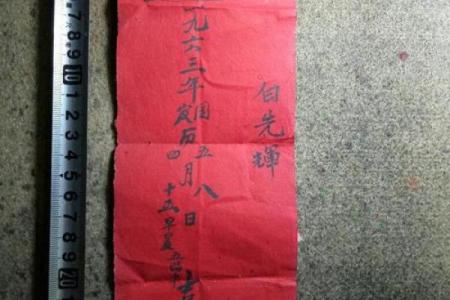 伯先輝
一九六三年国农历五四月八日
十五早晨五
7 8 9 10 1 2 3 4 5 6 7 8 9 20